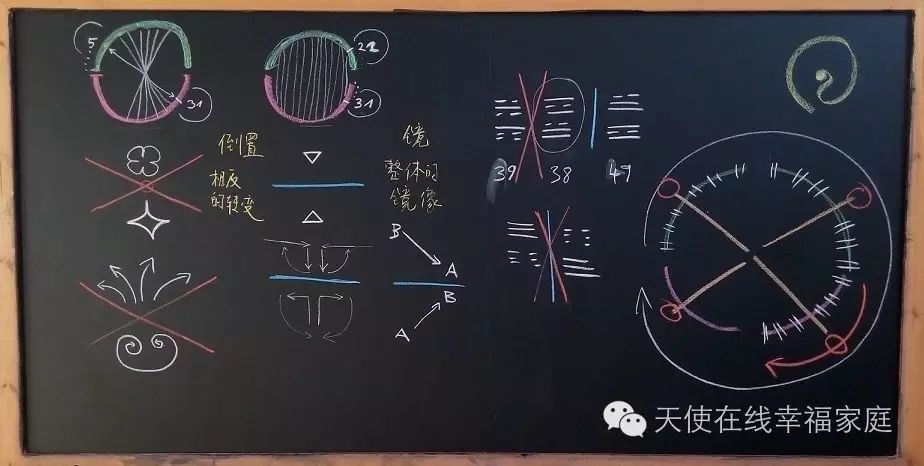 5
31
22
31
倒置
相反
的转变
镜
整体的
镜像
B
A
B
A
39
38
49
天使在线幸福家庭